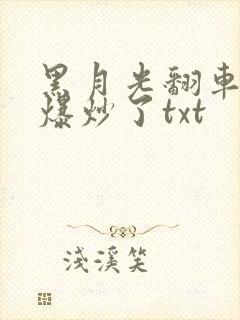 黑月光翻車
爆炒了txt
淺溪笑